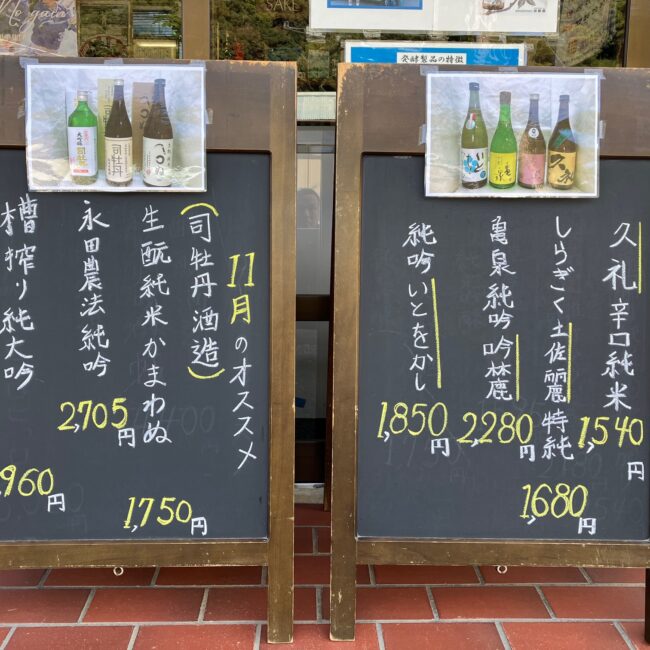 SAKE
発酵製品の特徴
11月のオススメ
(司牡丹酒造)
生酛純米かまわぬ
1,750円
永田農法純吟
2,705円
槽搾り純大吟
,960円
司牡丹
久礼辛口純米
1,540円
しらぎく土佐麗特純
1,680円
亀泉純吟吟麓
2,280円
純吟いとをかし
1,850円
久礼